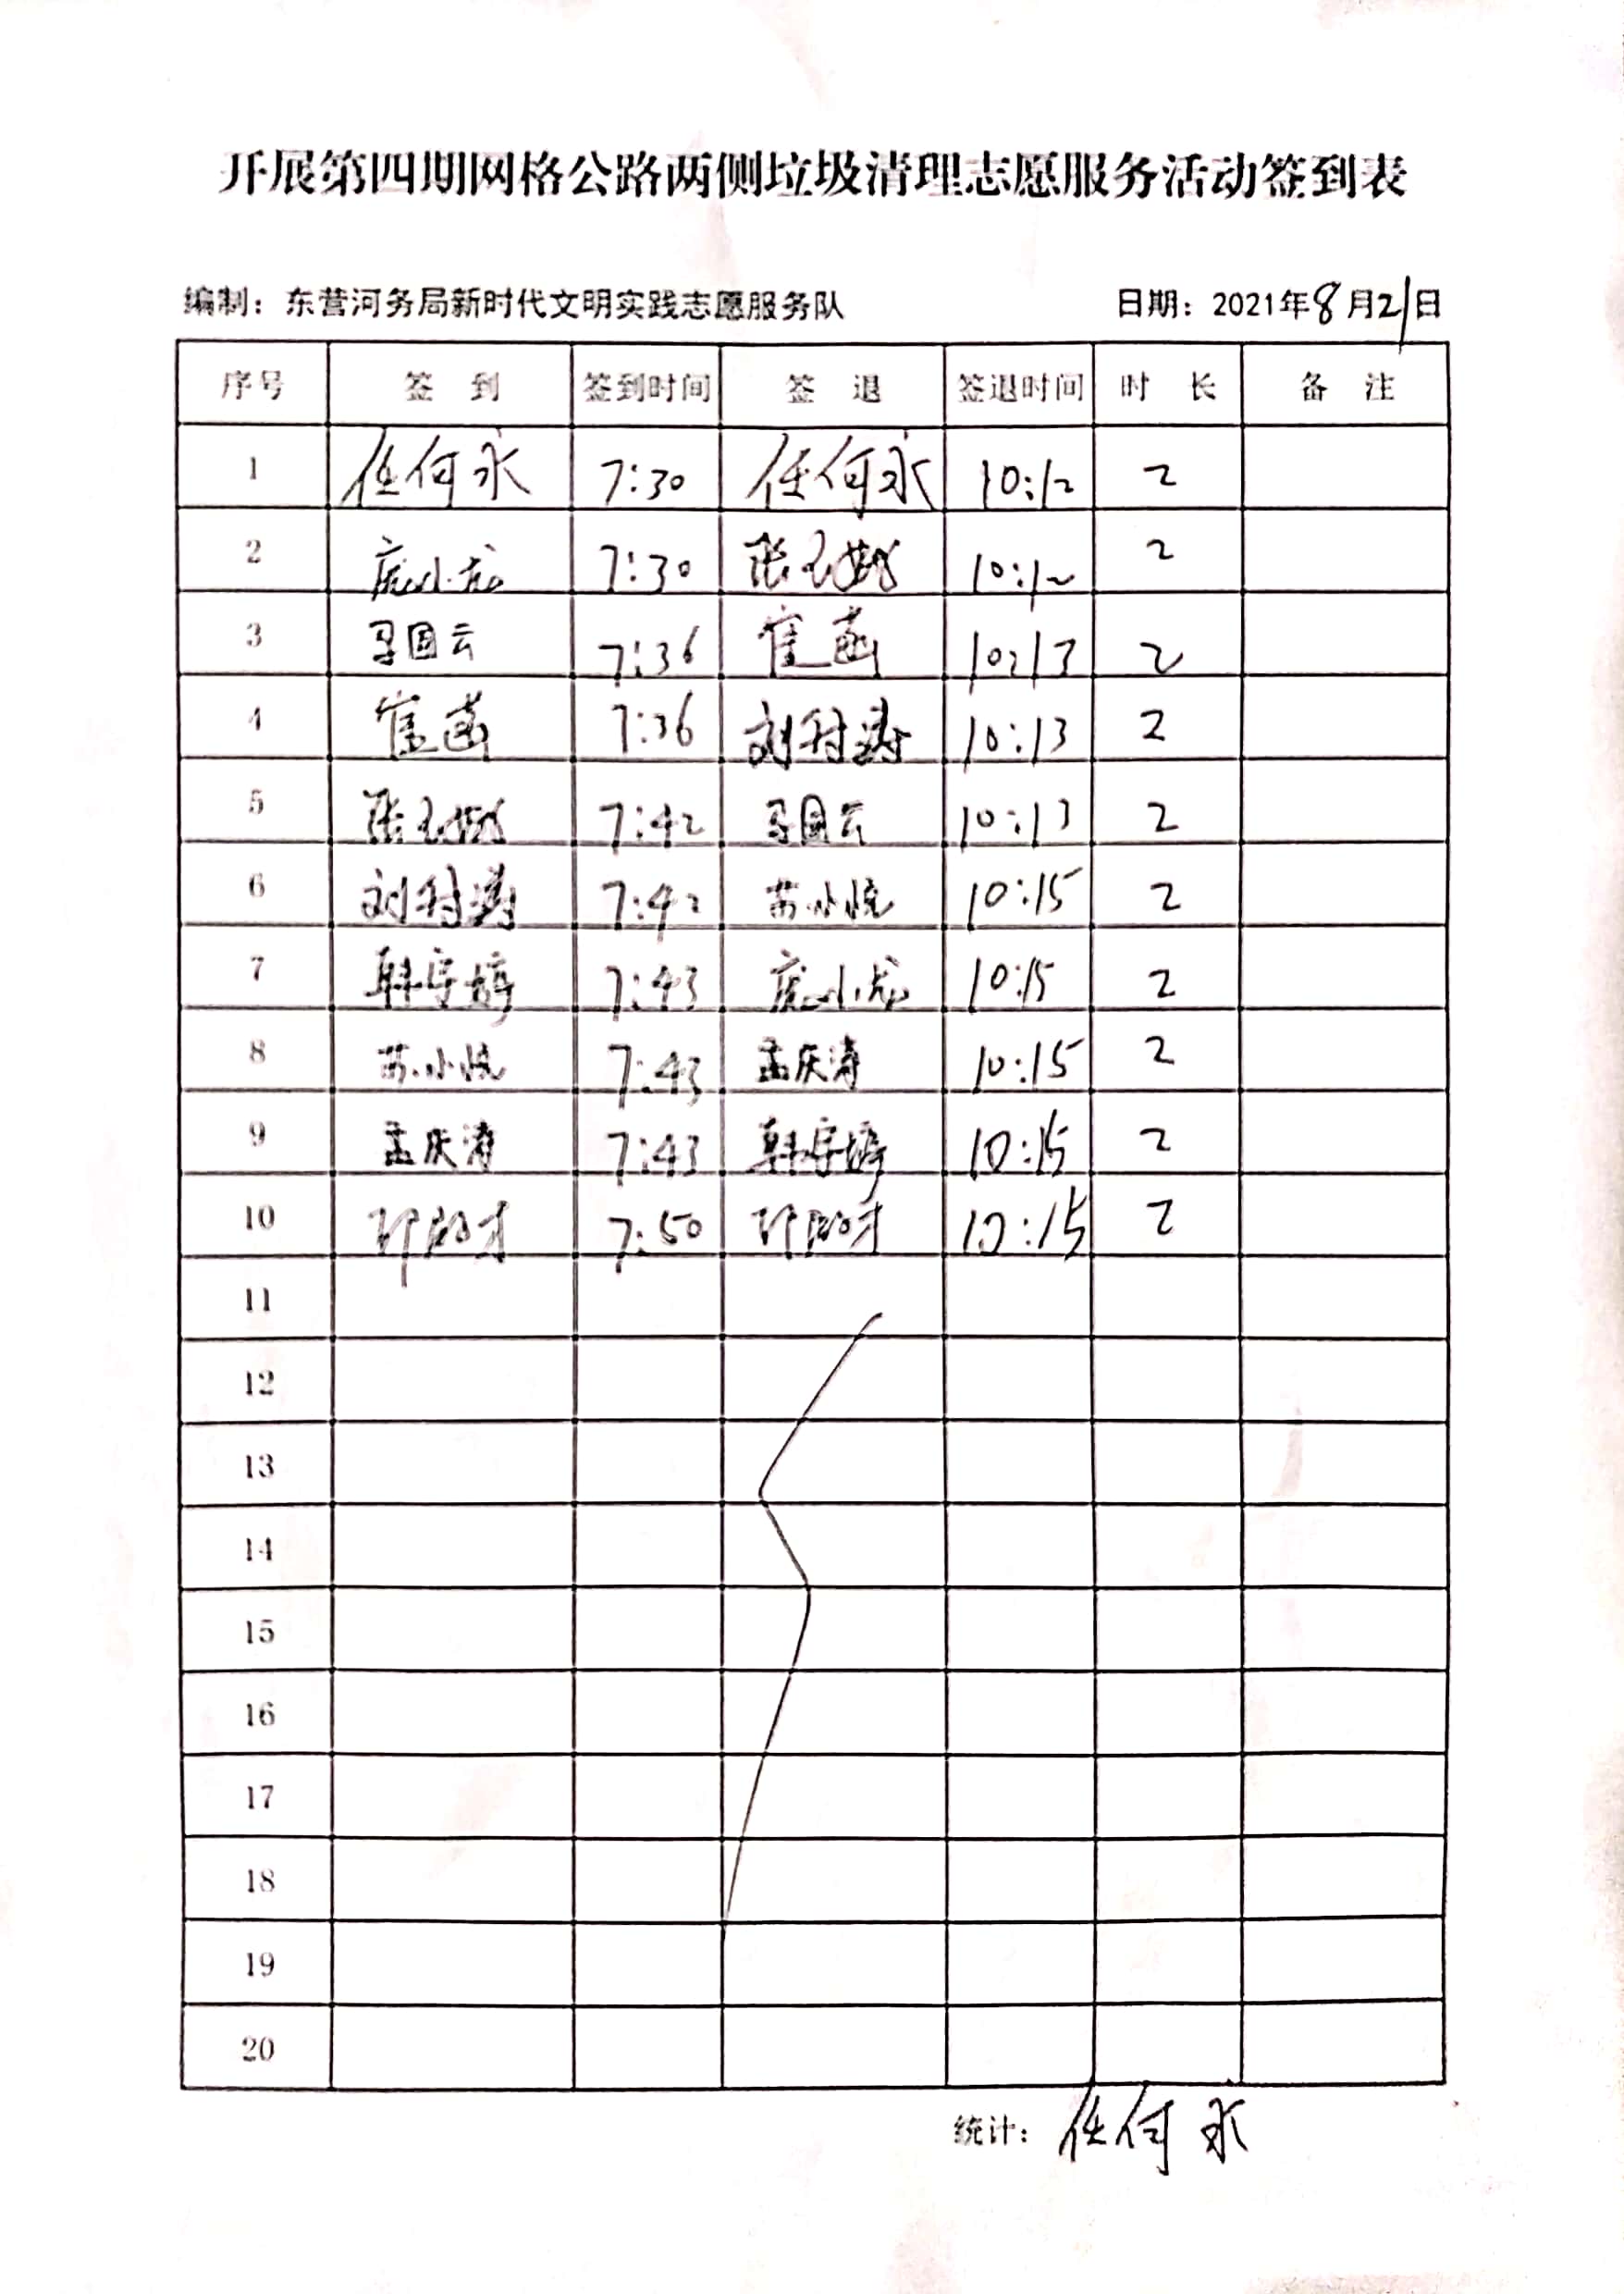 开展第四期网格公路两侧垃圾清理志愿服务活动签到表
编制：东营河务局新时代文明实践志愿服务队 日期：2021年8月21日
序号 签到 签到时间 签退 签退时间 时长 备注
1 任何永 7:30 任何永 10:12 2
2 庞小龙 7:30 张 10:12 2
3 马国云 7:36 崔菡 10:13 2
4 崔菡 7:36 刘村涛 10:13 2
5 张 7:42 马国云 10:13 2
6 刘村涛 7:42 苏小悦 10:15 2
7 韩宇婷 7:43 庞小龙 10:15 2
8 苏小悦 7:43 孟庆涛 10:15 2
9 孟庆涛 7:43 韩宇婷 10:15 2
10 7:50 10:15 2
11
12
13
14
15
16
17
18
19
20
统计：任何永